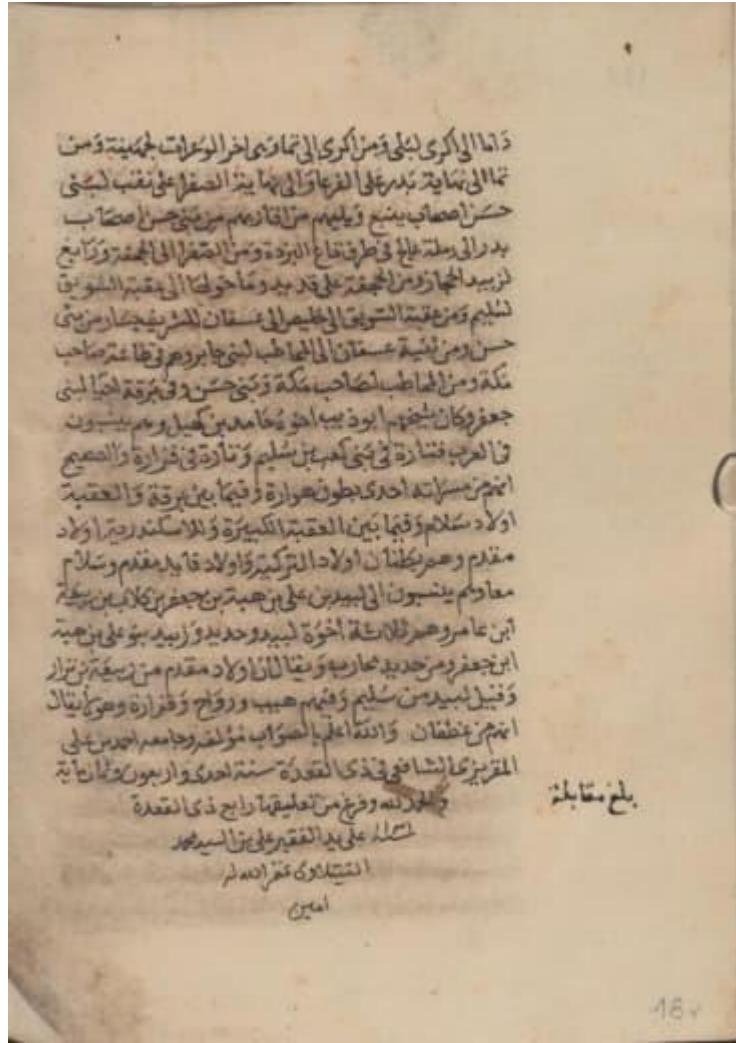 داما الى اكرى لبلى ومن اكرى الى تما وهى اخر الوعرات لجهينة ومن
تما الى نهاية بدر على الفرعا والى نهاية الصفرا على نقب لبنى
حسن اصحاب ينبع ويليهم من اقاربهم من بنى حسن اصحاب
بدر الى رملة عالج فى طرف قاع البزوة ومن الصفرا الى الجحفة ورابغ
لزبيد الحجاز ومن الجحفة على قديد وما حولها الى عقبة السويق
لسليم ومن عقبة السويق الى خليص الى عسفان للشريف جسار من بنى
حسن ومن ثنية عسفان الى المحاطب لبنى جابر وهم فى طاعة صاحب
مكة ومن المحاطب لصاحب مكة وبنى حسن وفى برقة احيا لبنى
جعفر وكان شيخهم ابو ذيب اخوه حامد بن كميل وهم ينسبون
فى العرب فتارة فى بنى كعب بن سليم وتارة فى فزارة والصحيح
انهم من مسراته احدى بطون هوارة وفيما بين برقة والعقبة
اولاد سلام وفيما بين العقبة الكبيرة والاسكندرية اولاد
مقدم وهم بطنان اولاد التركية واولاد فايد مقدم وسلام
معا وهم ينسبون الى لبيد بن على بن هبة بن جعفر بن كلاب بن ربيعة
ابن عامر وهم ثلاثة اخوة لبيد وحديد وزبيد بنو على بن هبة
ابن جعفر ومن حديد محارب ويقال ان اولاد مقدم من ربيعة بن نزار
وقيل لبيد من سليم وفيهم هيب ورواح وفزارة وهولا يقال
انهم من غطفان والله اعلم بالصواب مولفه وجامعه احمد بن على
المقريزى الشافعى فى ذى القعدة سنة احدى واربعون وثمان ماية
والحمد لله وفرغ من تعليقها رابع ذى القعدة
على يد الفقير على بن السيد محمد
غفر الله له
امين
بلغ مقابلة
18v